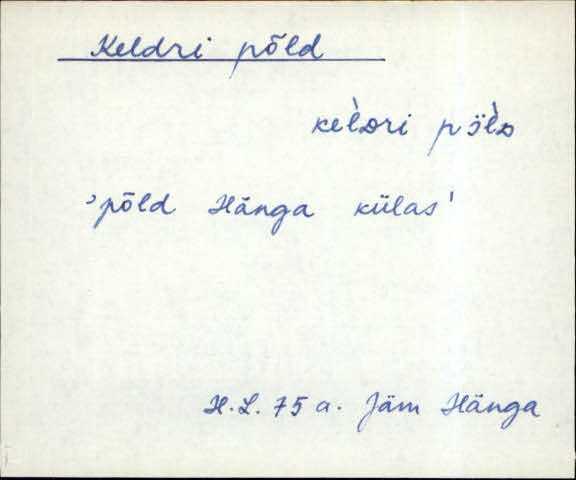 Keldri põld
kel̀dri pṏl̀d
'põld Hänga külas'
H.L. 75 a. Jäm Hänga